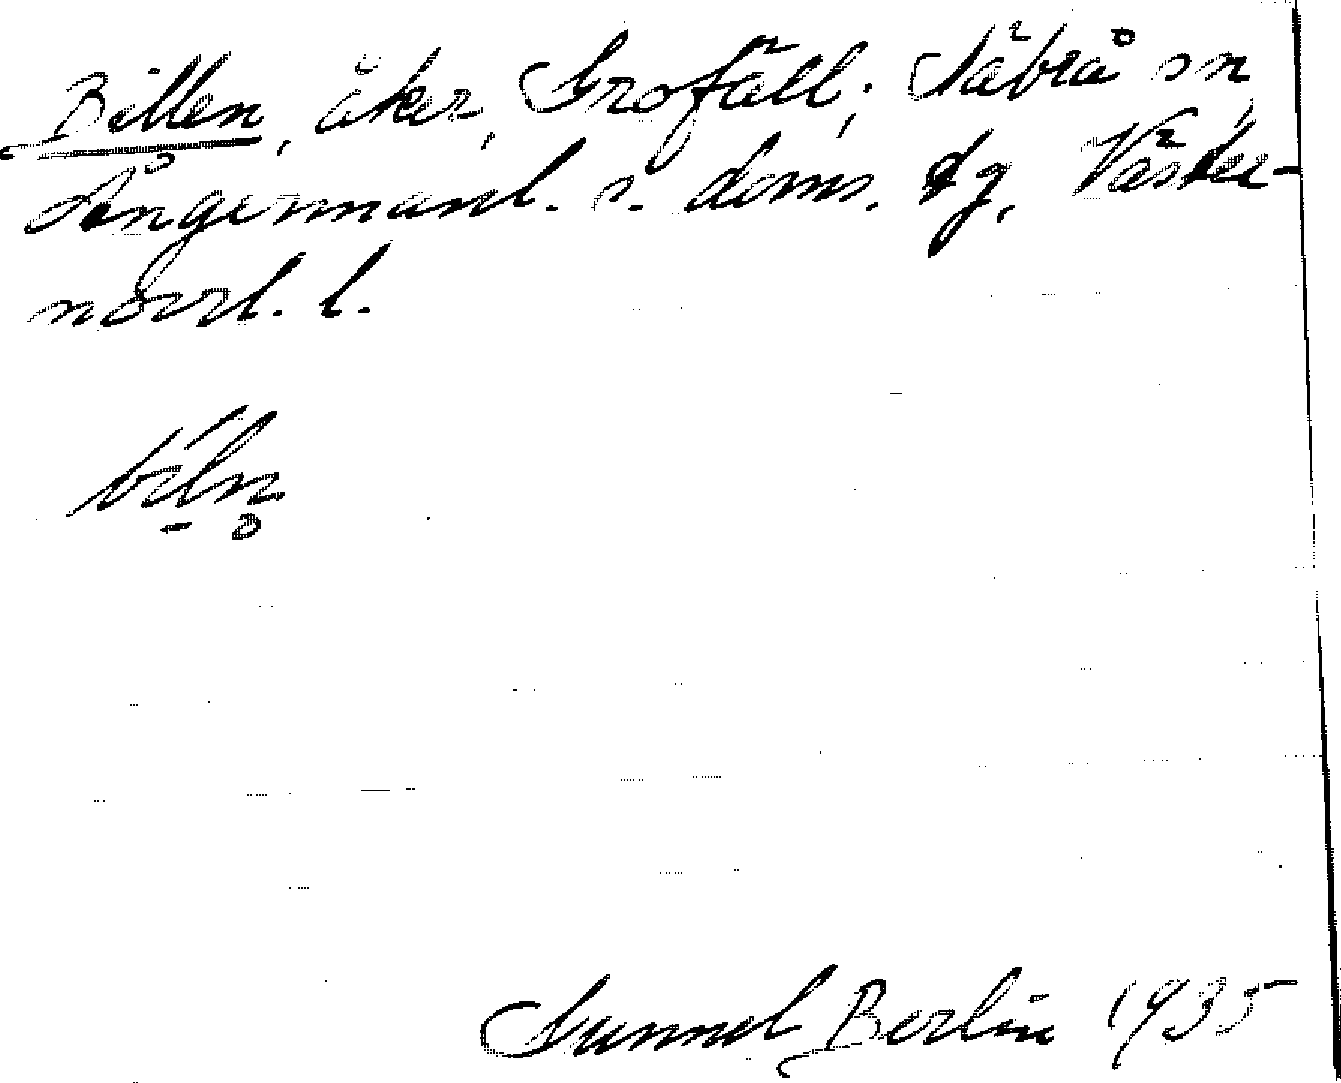 Billen, åker, Grofäll; Säbrå sn,
Ångermanl. s. doms. dg, Väster-
norrl. l.
bìln̥
Gunnel Berlin 1935